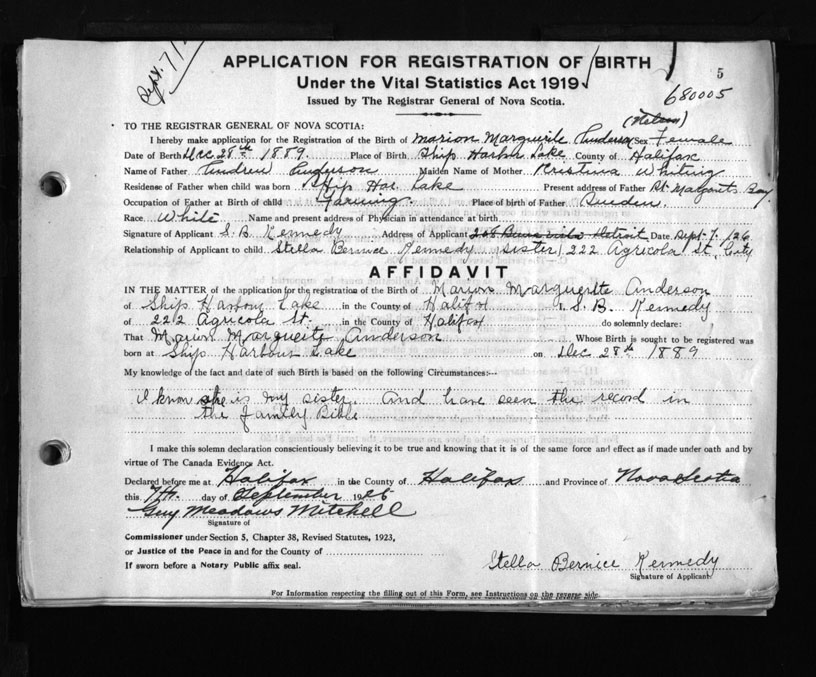 Sept. 7/
APPLICATION FOR REGISTRATION OF BIRTH
5
Under the Vital Statistics Act 1919
680005
Issued by The Registrar General of Nova Scotia.
(Nelson)
TO THE REGISTRAR GENERAL OF NOVA SCOTIA:
I hereby make application for the Registration of the Birth of Marion Marguerite Anderson Sex Female
Date of Birth Dec 28th 1889. Place of Birth Ship Harbor Lake County of Halifax
Name of Father Andrew Anderson Maiden Name of Mother Kristina Whiting
Residense of Father when child was born Ship Har. Lake Present address of Father St. Margarets Bay
Occupation of Father at Birth of child Farming. Place of birth of Father Sweden.
Race White Name and present address of Physician in attendance at birth
Signature of Applicant S. B. Kennedy Address of Applicant Detroit Date Sept. 7. /26
Relationship of Applicant to child Stella Bernice Kennedy sister) 222 Agricola St. City
AFFIDAVIT
IN THE MATTER of the application for the registration of the Birth of Marion Marguerite Anderson
of Ship Harbour Lake in the County of Halifax I S. B. Kennedy
of 222 Agricola St. in the County of Halifax do solemnly declare:
That Marion Marguerite Anderson Whose Birth is sought to be registered was
born at Ship Harbour Lake on Dec 28th 1889
My knowledge of the fact and date of such Birth is based on the following Circumstances:—
I know she is my sister. And have seen the record in
the family Bible
I make this solemn declaration conscientiously believing it to be true and knowing that it is of the same force and effect as if made under oath and by
virtue of The Canada Evidence Act.
Declared before me at Halifax in the County of Halifax and Province of Nova Scotia
this 7th. day of September 1926
Guy Meadows Mitchell
Signature of
Commissioner under Section 5, Chapter 38, Revised Statutes, 1923,
or Justice of the Peace in and for the County of
If sworn before a Notary Public affix seal.
Stella Bernice Kennedy
Signature of Applicant
For Information respecting the filling out of this Form, see Instructions on the reverse side.